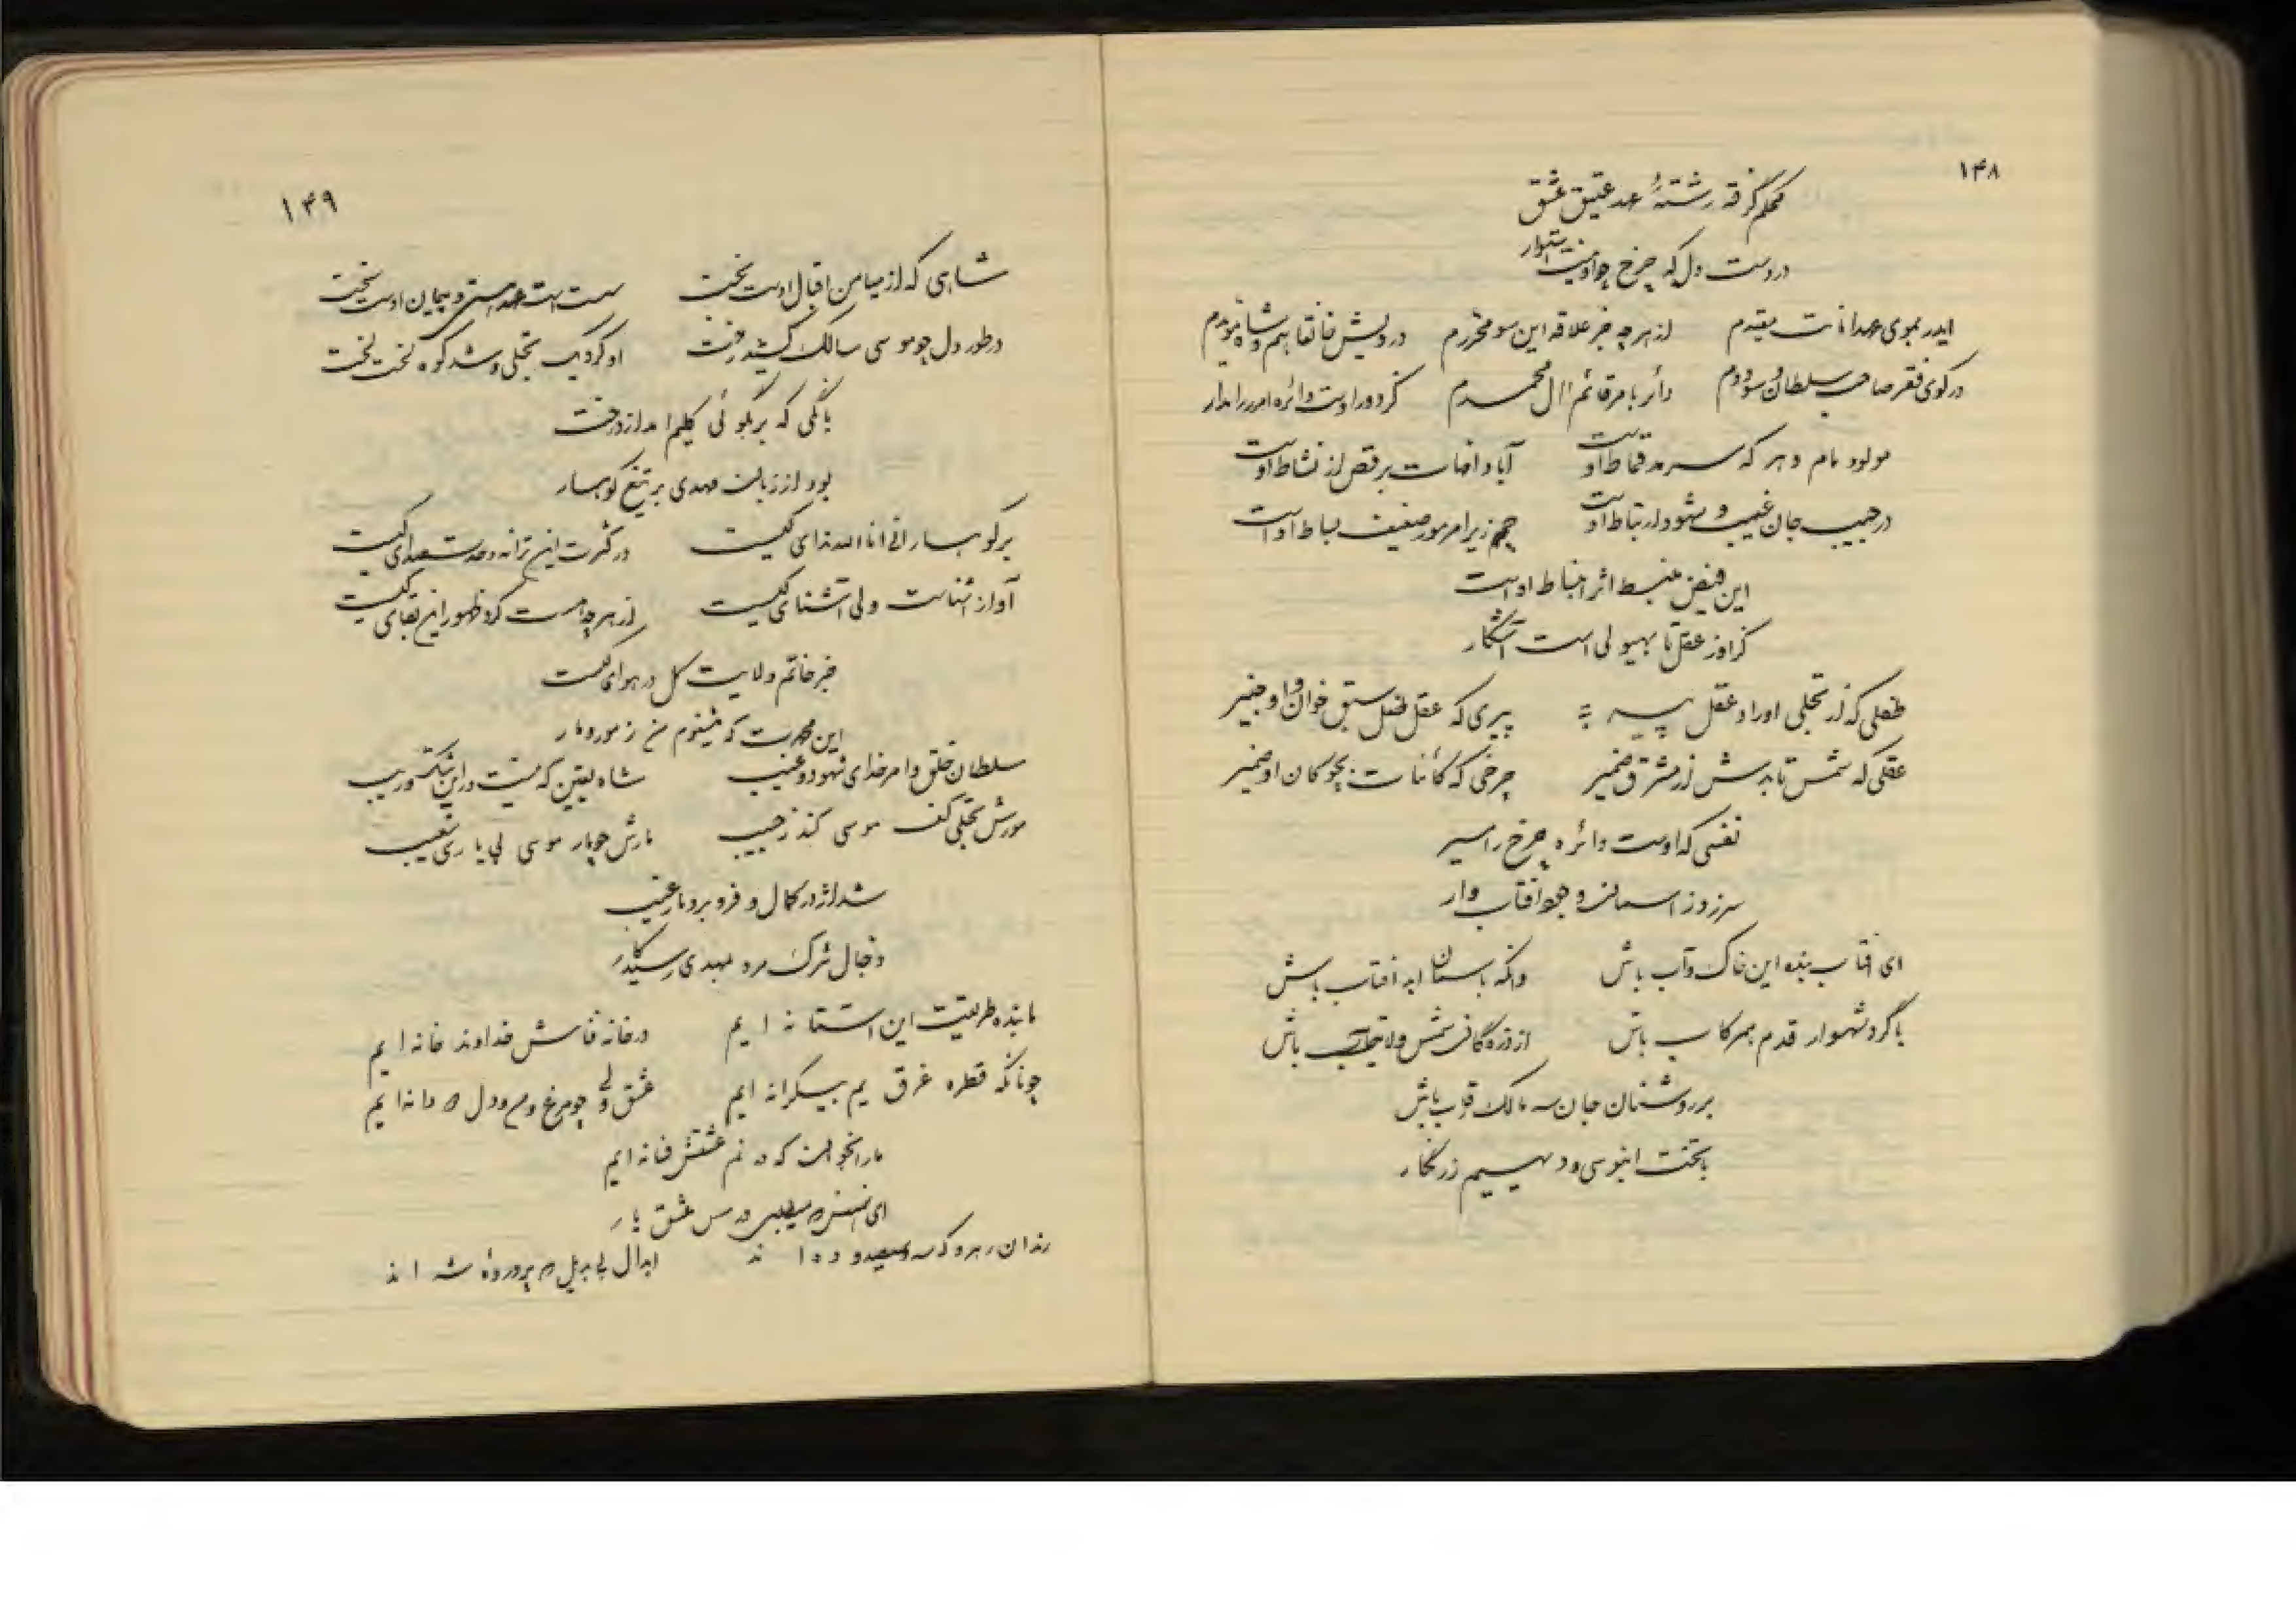 ۱۴۸
محکم گرفته رشتهٔ عهد عتیق عشق
در دست دل که چرخ چو او نیست استوار
ایدر بموی عهد انانیت مقیدم از هر چه جز علاقه این سو مجردم درویش خانقاهم و شاه مؤیدم
در کوی فقر صاحب سلطان و سوددم دائر بامر قائم آل محمدم کز دور اوست دائره امر را مدار
مولود مام دهر که سرمد قماط اوست آباد امهات برقص از نشاط اوست
در جیب جان غیب و شهود ارتباط اوست جم زیر امر مور ضعیف بساط اوست
این فیض منبسط اثر انبساط اوست
کز اوز عقل تا بهیولی است آشکار
طفلی که از تجلی او راد عقل پیر پیری که عقل طفل سبق خوان و او خبیر
عقلی که شمس تابدش از مشرق ضمیر چرخی که کائنات بچوگان او صغیر
نفسی که اوست دائره چرخ را مسیر
سر زد ز آسمان وجود آفتاب وار
ای آفتاب بنده این خاک و آب باش وانگه باسمان ابد آفتاب باش
با گرد شهسوار قدم همرکاب باش از ذره گان شمس ولایتمآب باش
بر روشنان جان مالک رقاب باش
با تخت ابنوسی و دیهیم زرنگار
۱۴۹
شاهی که از میامن اقبال اوست بخت سست است عهد هستی و پیمان اوست سخت
در طور دل چو موسی سالک کشید رخت او کرد یک تجلی و شد کوه لخت لخت
بانگی که بر نگوئی کلیم آمد از درخت
بود از زبان مهدی بر تیغ کوهسار
بر کوهسار انی انا الله ندای کیست در کثرت این ترانه وحدت صدای کیست
آواز آشناست ولی آشنای کیست از هر چه هست کرد ظهور این بقای کیست
جز خاتم ولایت کل در هوای کیست
این محمدت که میشنوم من ز مور و مار
سلطان خلق و امر خدای شهود و غیب شاه یقین که نیست در این شک و ریب
مورش تجلی کف موسی کند ز جیب مارش چوپار موسی پی یاری شعیب
شد اژدر کمال و فرو برد مار عیب
دجال شرک مرد مهدی رسید کار
ما بنده طریقت این آستانه ایم در خانه فاش خداوند خانه ایم
چونانکه قطره غرق یم بیکرانه ایم عشق ولی چو مرغ و دل دانه ایم
ما را نخوان که در غم عشقش فسانه ایم
ای عشق یار
رندان رهرو که اند ابدال بی بدیل پروردهٔ شه اند